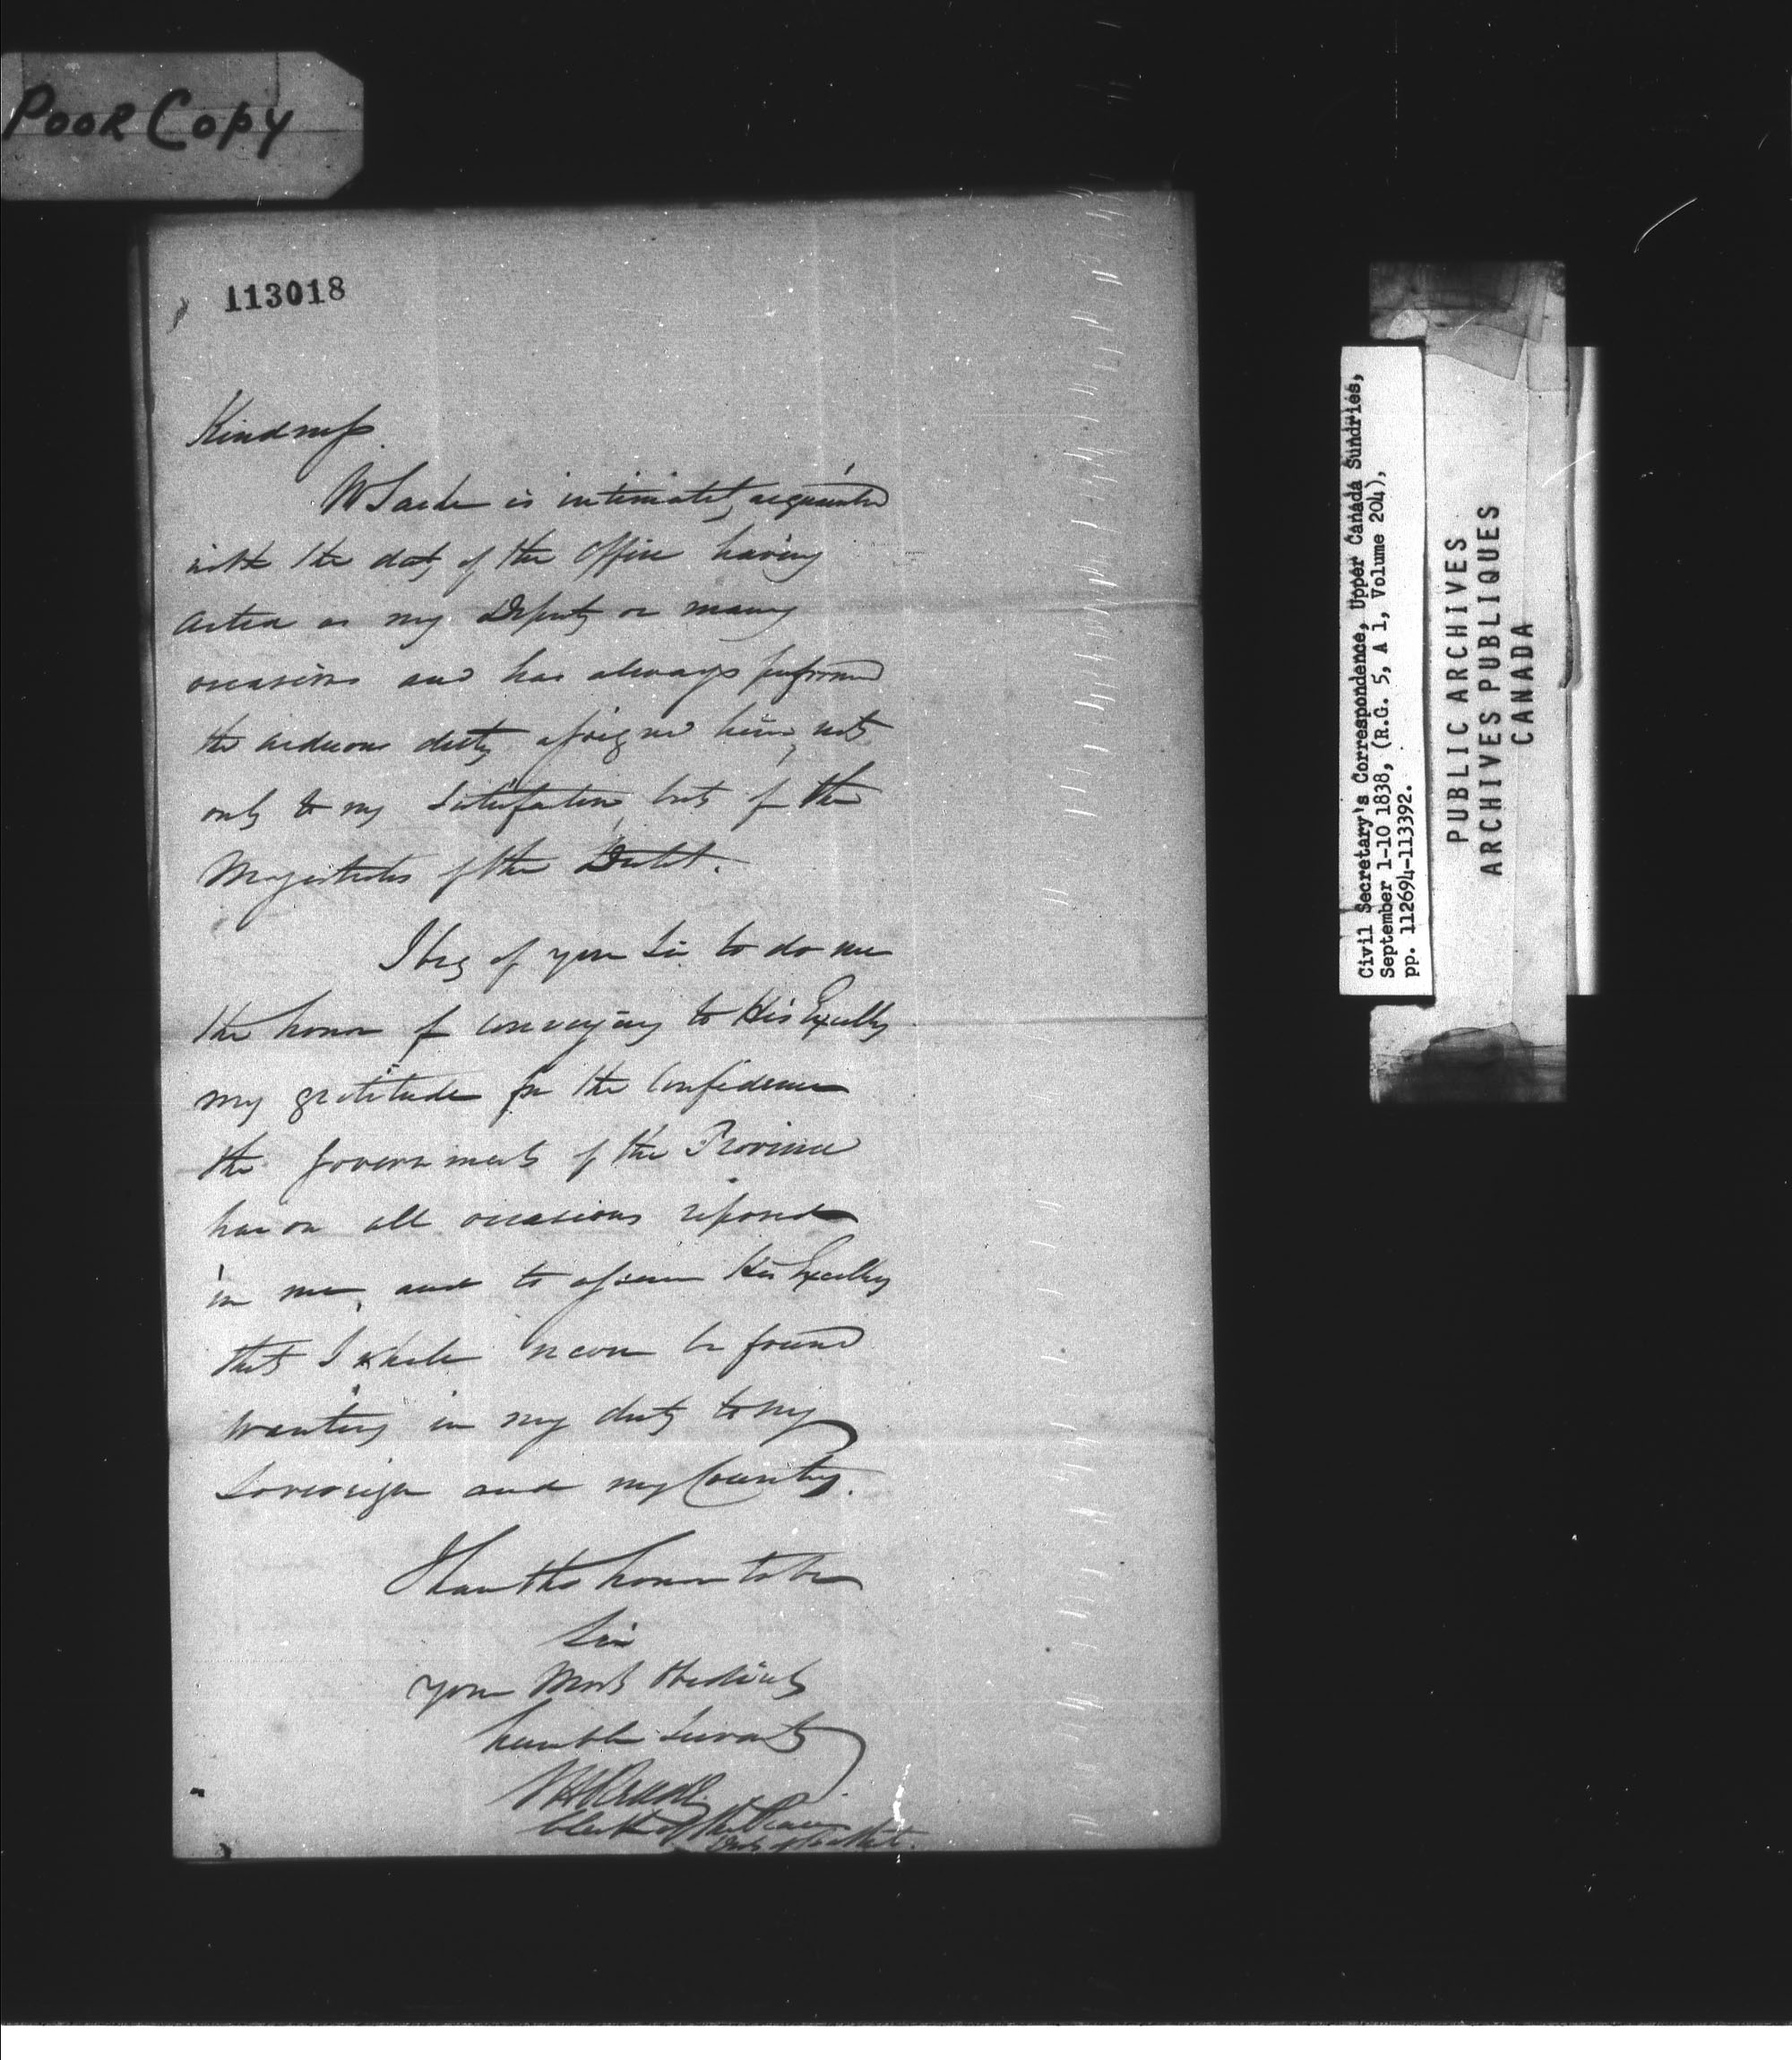 Poor Copy
113018
Kindness.
Mr Sache is intimately acquainted
with the duty of the Office having
acted as my Deputy on many
occasions and has always performed
the arduous duty assigned him, not
only to my Satisfaction, but of the
Magistrates of the District.
I beg of you Sir to do me
the honor of conveying to His Excelly
my gratitude for the Confidence
the Government of the Province
has on all occasions reposed
in me, and to assure His Excelly
that I shall never be found
wanting in my duty to my
Sovereign and my Country.
I have the honor to be
Sir
your Most Obedient
humble Servant
Clerk of the Peace
Dist of Bathurst.
Civil Secretary's Correspondence, Upper Canada Sundries,
September 1-10 1838, (R.G. 5, A 1, Volume 204),
pp. 112694-113392.
PUBLIC ARCHIVES
ARCHIVES PUBLIQUES
CANADA